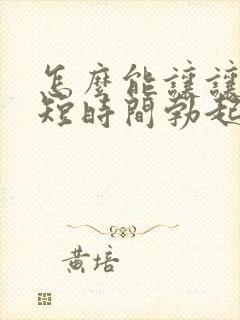 怎麼能讓讓
短時間勃起
黃培